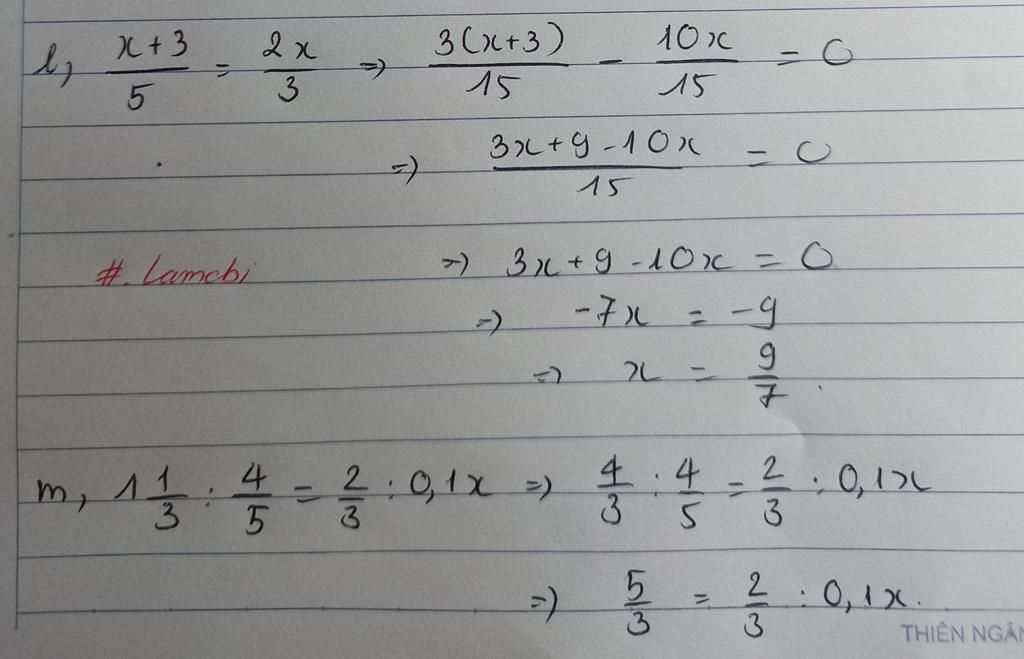 l, (x+3)/5 = 2x/3 => 3(x+3)/15 - 10x/15 = 0
=> (3x+9-10x)/15 = 0
#. Lamchi => 3x+9-10x = 0
=> -7x = -9
=> x = 9/7.
m, 1 1/3 : 4/5 = 2/3 : 0,1x => 4/3 : 4/5 = 2/3 : 0,1x
=> 5/3 = 2/3 : 0,1x.
THIÊN NGÂN